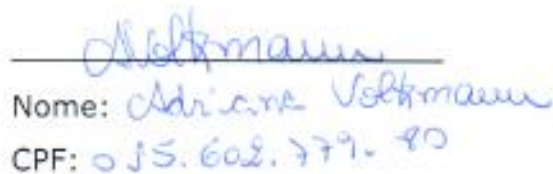 AVolkmann
Nome: Adriana Volkmann
CPF: 035.602.779-80